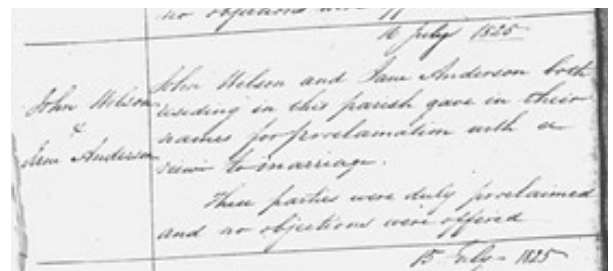 no objections were off
16 July 1825
John Wilson
&
Jane Anderson
John Wilson and Jane Anderson both
residing in this parish gave in their
names for proclamation with a
view to marriage.
These parties were duly proclaimed
and no objections were offered
15 July - 1825